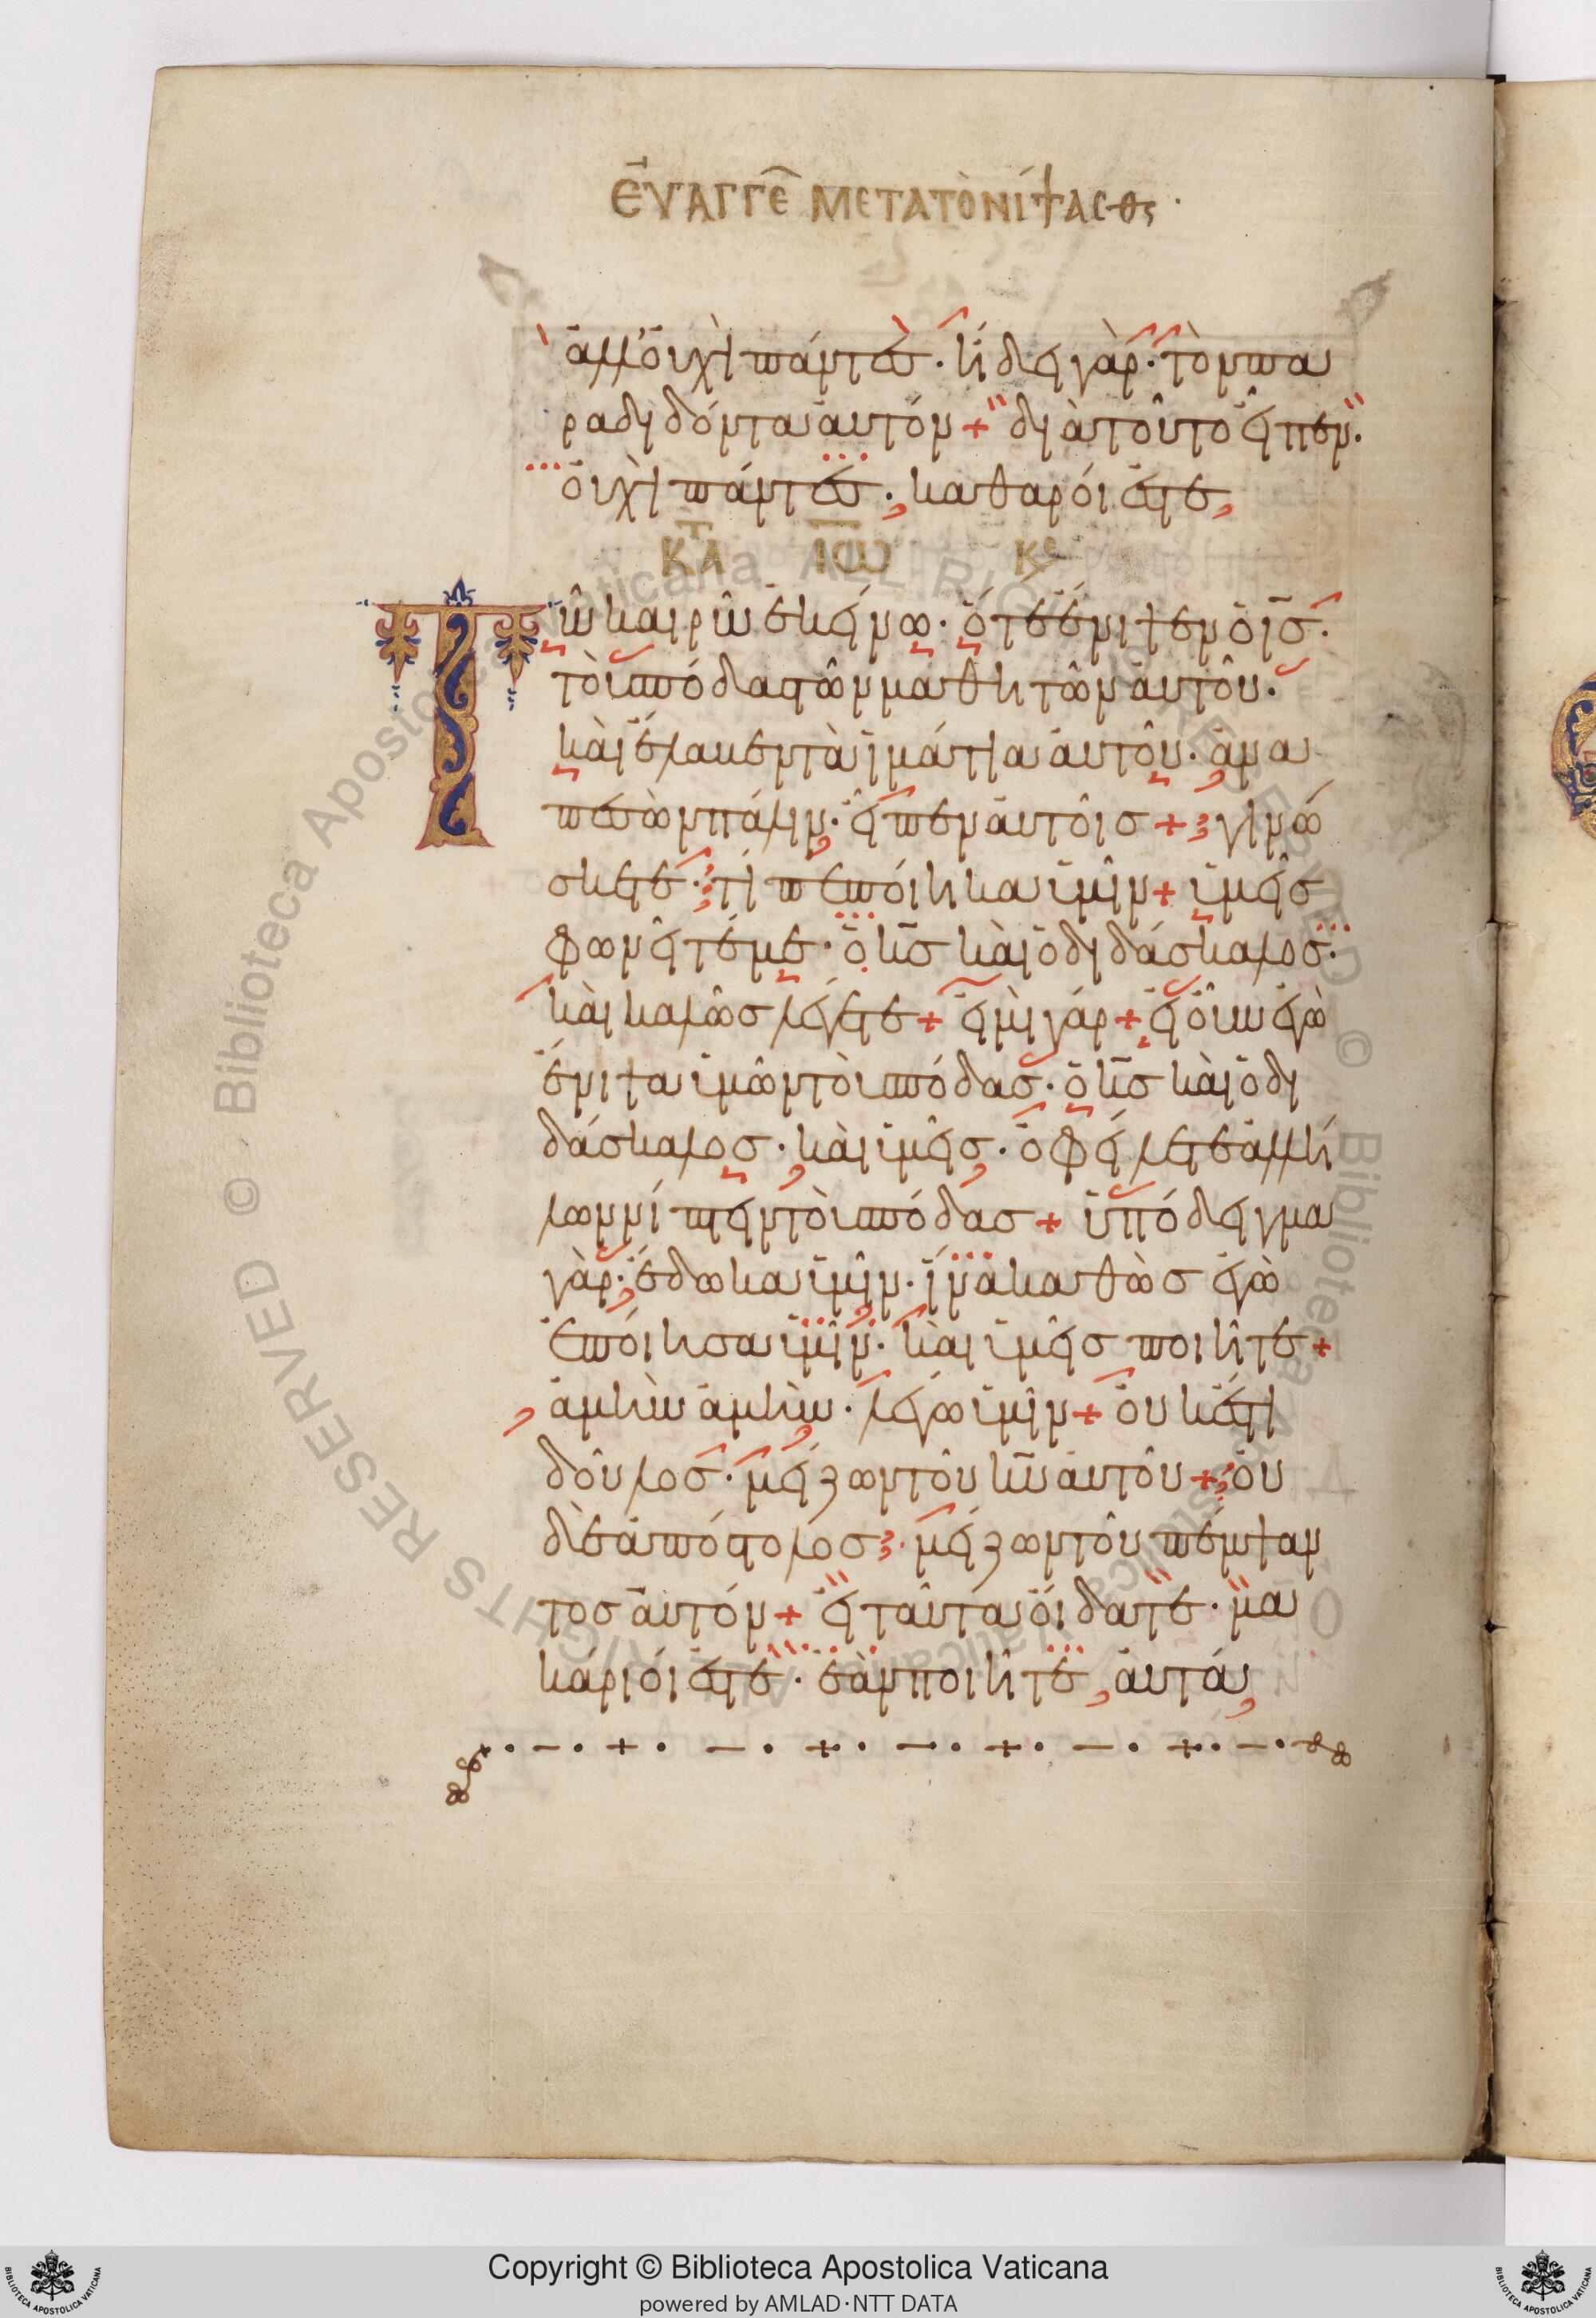 ἘΥΑΓΓΕ ΜΕΤΑ ΤῸ ΝΊΨΑΣΘΕ·
ἀλλ' οὐχὶ πάντες· ἤδει γὰρ· τὸν πα
ραδιδόντα αὐτόν + διὰ τοῦτο εἶπεν·
οὐχὶ πάντες· καθαροί ἐστε,
ΚΤΑ ΙΩ ΚΕ
Τῶ καιρῶ ἐκείνω· ὅτε ἔνιψεν ὁ ΙΣ·
τοὺς πόδας τῶν μαθητῶν αὐτοῦ·
καὶ ἔλαβεν τὰ ἱμάτια αὐτοῦ· ἀνα
πεσὼν πάλιν· εἶπεν αὐτοῖς + γινώ
σκετε· τί πεποίηκα ὑμῖν + ὑμεῖς
φωνεῖτέ με· ὁ ΚΣ καὶ ὁ διδάσκαλος·
καὶ καλῶς λέγετε + εἰμὶ γάρ + εἰ οὖν ἐγὼ
ἔνιψα ὑμῶν τοὺς πόδας· ὁ ΚΣ καὶ ὁ δι
δάσκαλος· καὶ ὑμεῖς· ὀφείλετε ἀλλή
λων νίπτειν τοὺς πόδας + ὑπόδειγμα
γὰρ· ἔδωκα ὑμῖν· ἵνα καθὼς ἐγὼ
ἐποίησα ὑμῖν· καὶ ὑμεῖς ποιῆτε +
ἀμὴν ἀμὴν· λέγω ὑμῖν + οὐκ ἔστι
δοῦλος· μείζων τοῦ ΚΥ αὐτοῦ + οὐ
δὲ ἀπόστολος· μείζων τοῦ πέμψαν
τος αὐτόν + εἰ ταῦτα οἴδατε· μα
κάριοί ἐστε· ἐὰν ποιῆτε, αὐτά,
© Biblioteca Apostolica Vaticana ALL RIGHTS RESERVED © Biblioteca Apostolica Vaticana ALL RIGHTS RESERVED
Copyright © Biblioteca Apostolica Vaticana
powered by AMLAD·NTT DATA
BIBLIOTECA APOSTOLICA VATICANA
BIBLIOTECA APOSTOLICA VATICANA